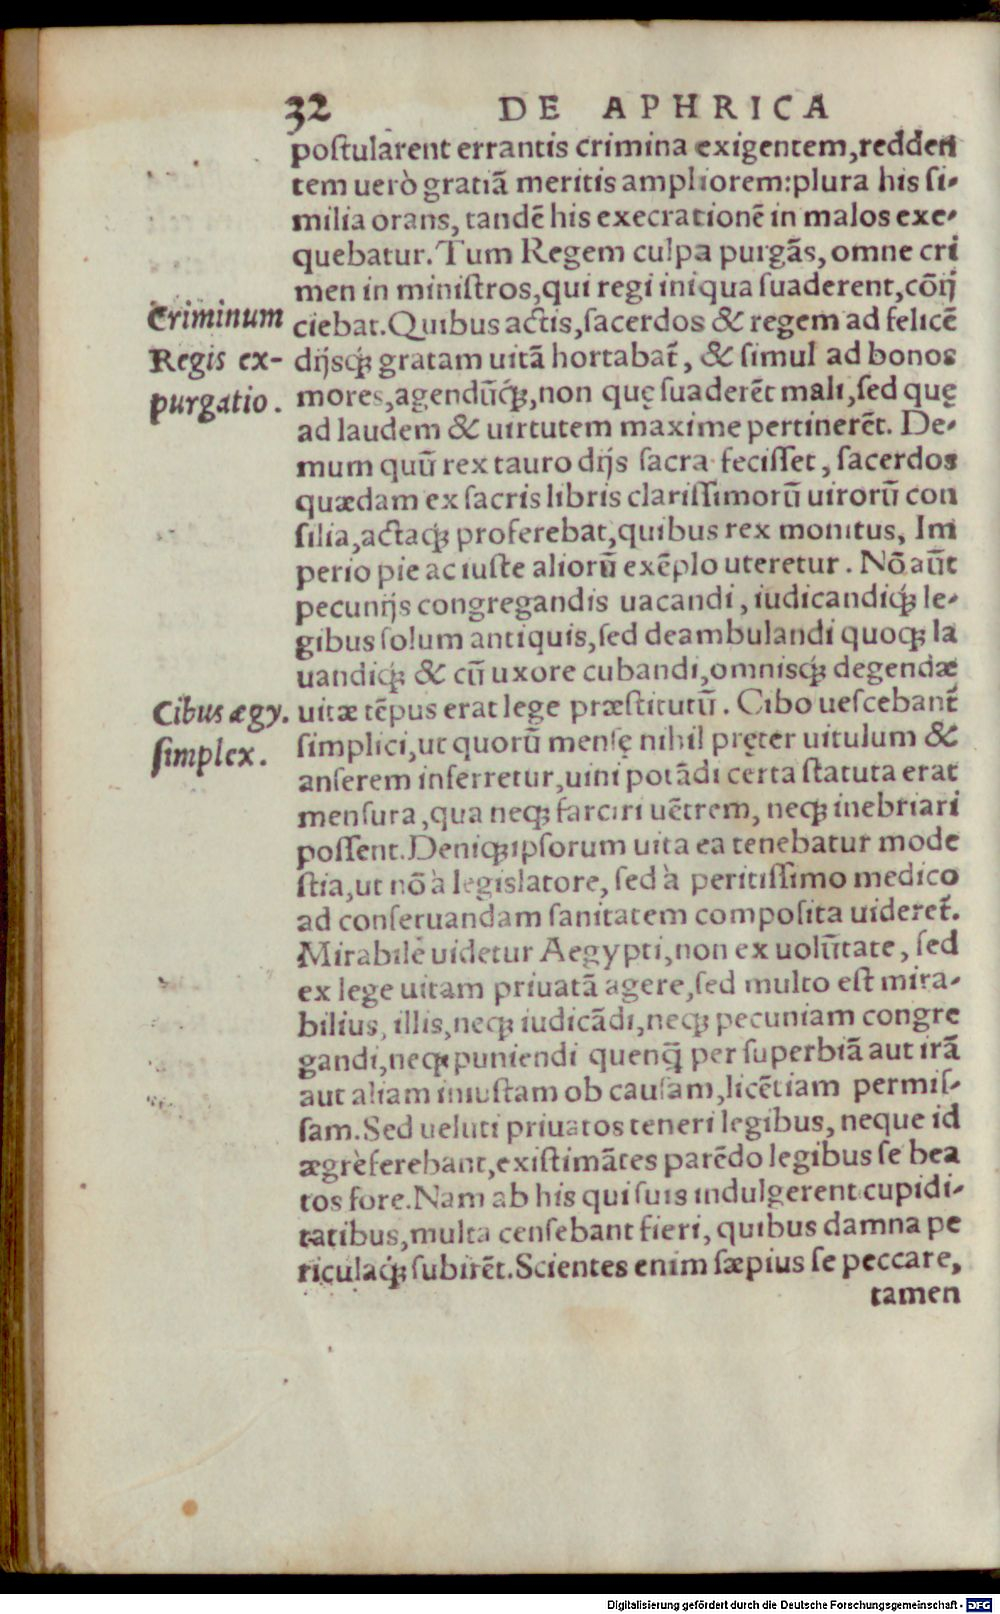 32 DE APHRICA
poſtularent errantis crimina exigentem,redden
tem uerò gratiā meritis ampliorem:plura his ſi-
milia orans, tandē his execrationē in malos exe-
quebatur. Tum Regem culpa purgās, omne cri
men in miniſtros,qui regi iniqua ſuaderent,cōij
Criminum
Regis ex-
purgatio.
ciebat.Quibus actis,ſacerdos & regem ad felicē
dijsq́ꝫ gratam uitā hortabat̄, & ſimul ad bonos
mores,agendūq́ꝫ,non quę ſuaderēt mali,ſed quę
ad laudem & uirtutem maxime pertinerēt. De-
mum quū rex tauro dijs ſacra feciſſet, ſacerdos
quædam ex ſacris libris clariſſimorū uirorū con
ſilia,actaq́ꝫ proferebat,quibus rex monitus, Im
perio pie ac iuſte aliorū exēplo uteretur. Nō aūt
pecunijs congregandis uacandi, iudicandiq́ꝫ le-
gibus ſolum antiquis,ſed deambulandi quoqꝫ la
uandiq́ꝫ & cū uxore cubandi,omnisqꝫ degendæ
Cibus ægy.
ſimplex.
uitæ tēpus erat lege præſtitutū. Cibo ueſcebant̄
ſimplici,ut quorū menſę nihil pręter uitulum &
anſerem inferretur,uini potādi certa ſtatuta erat
menſura,qua neqꝫ farciri uētrem, neqꝫ inebriari
poſſent.Deniqꝫ ipſorum uita ea tenebatur mode
ſtia,ut nō à legislatore, ſed à peritiſſimo medico
ad conſeruandam ſanitatem compoſita uideret̄.
Mirabile uidetur Aegypti,non ex uolūtate, ſed
ex lege uitam priuatā agere,ſed multo eſt mira-
bilius, illis,neqꝫ iudicādi,neqꝫ pecuniam congre
gandi,neqꝫ puniendi quenq̄ per ſuperbiā aut irā
aut aliam iniuſtam ob cauſam,licētiam permiſ-
ſam.Sed ueluti priuatos teneri legibus, neque id
ægrè ferebant,exiſtimātes parēdo legibus ſe bea
tos fore.Nam ab his qui ſuis indulgerent cupidi-
tatibus,multa cenſebant fieri, quibus damna pe
riculaq́ꝫ ſubirēt.Scientes enim ſæpius ſe peccare,
tamen
Digitalisierung gefördert durch die Deutsche Forschungsgemeinschaft - DFG